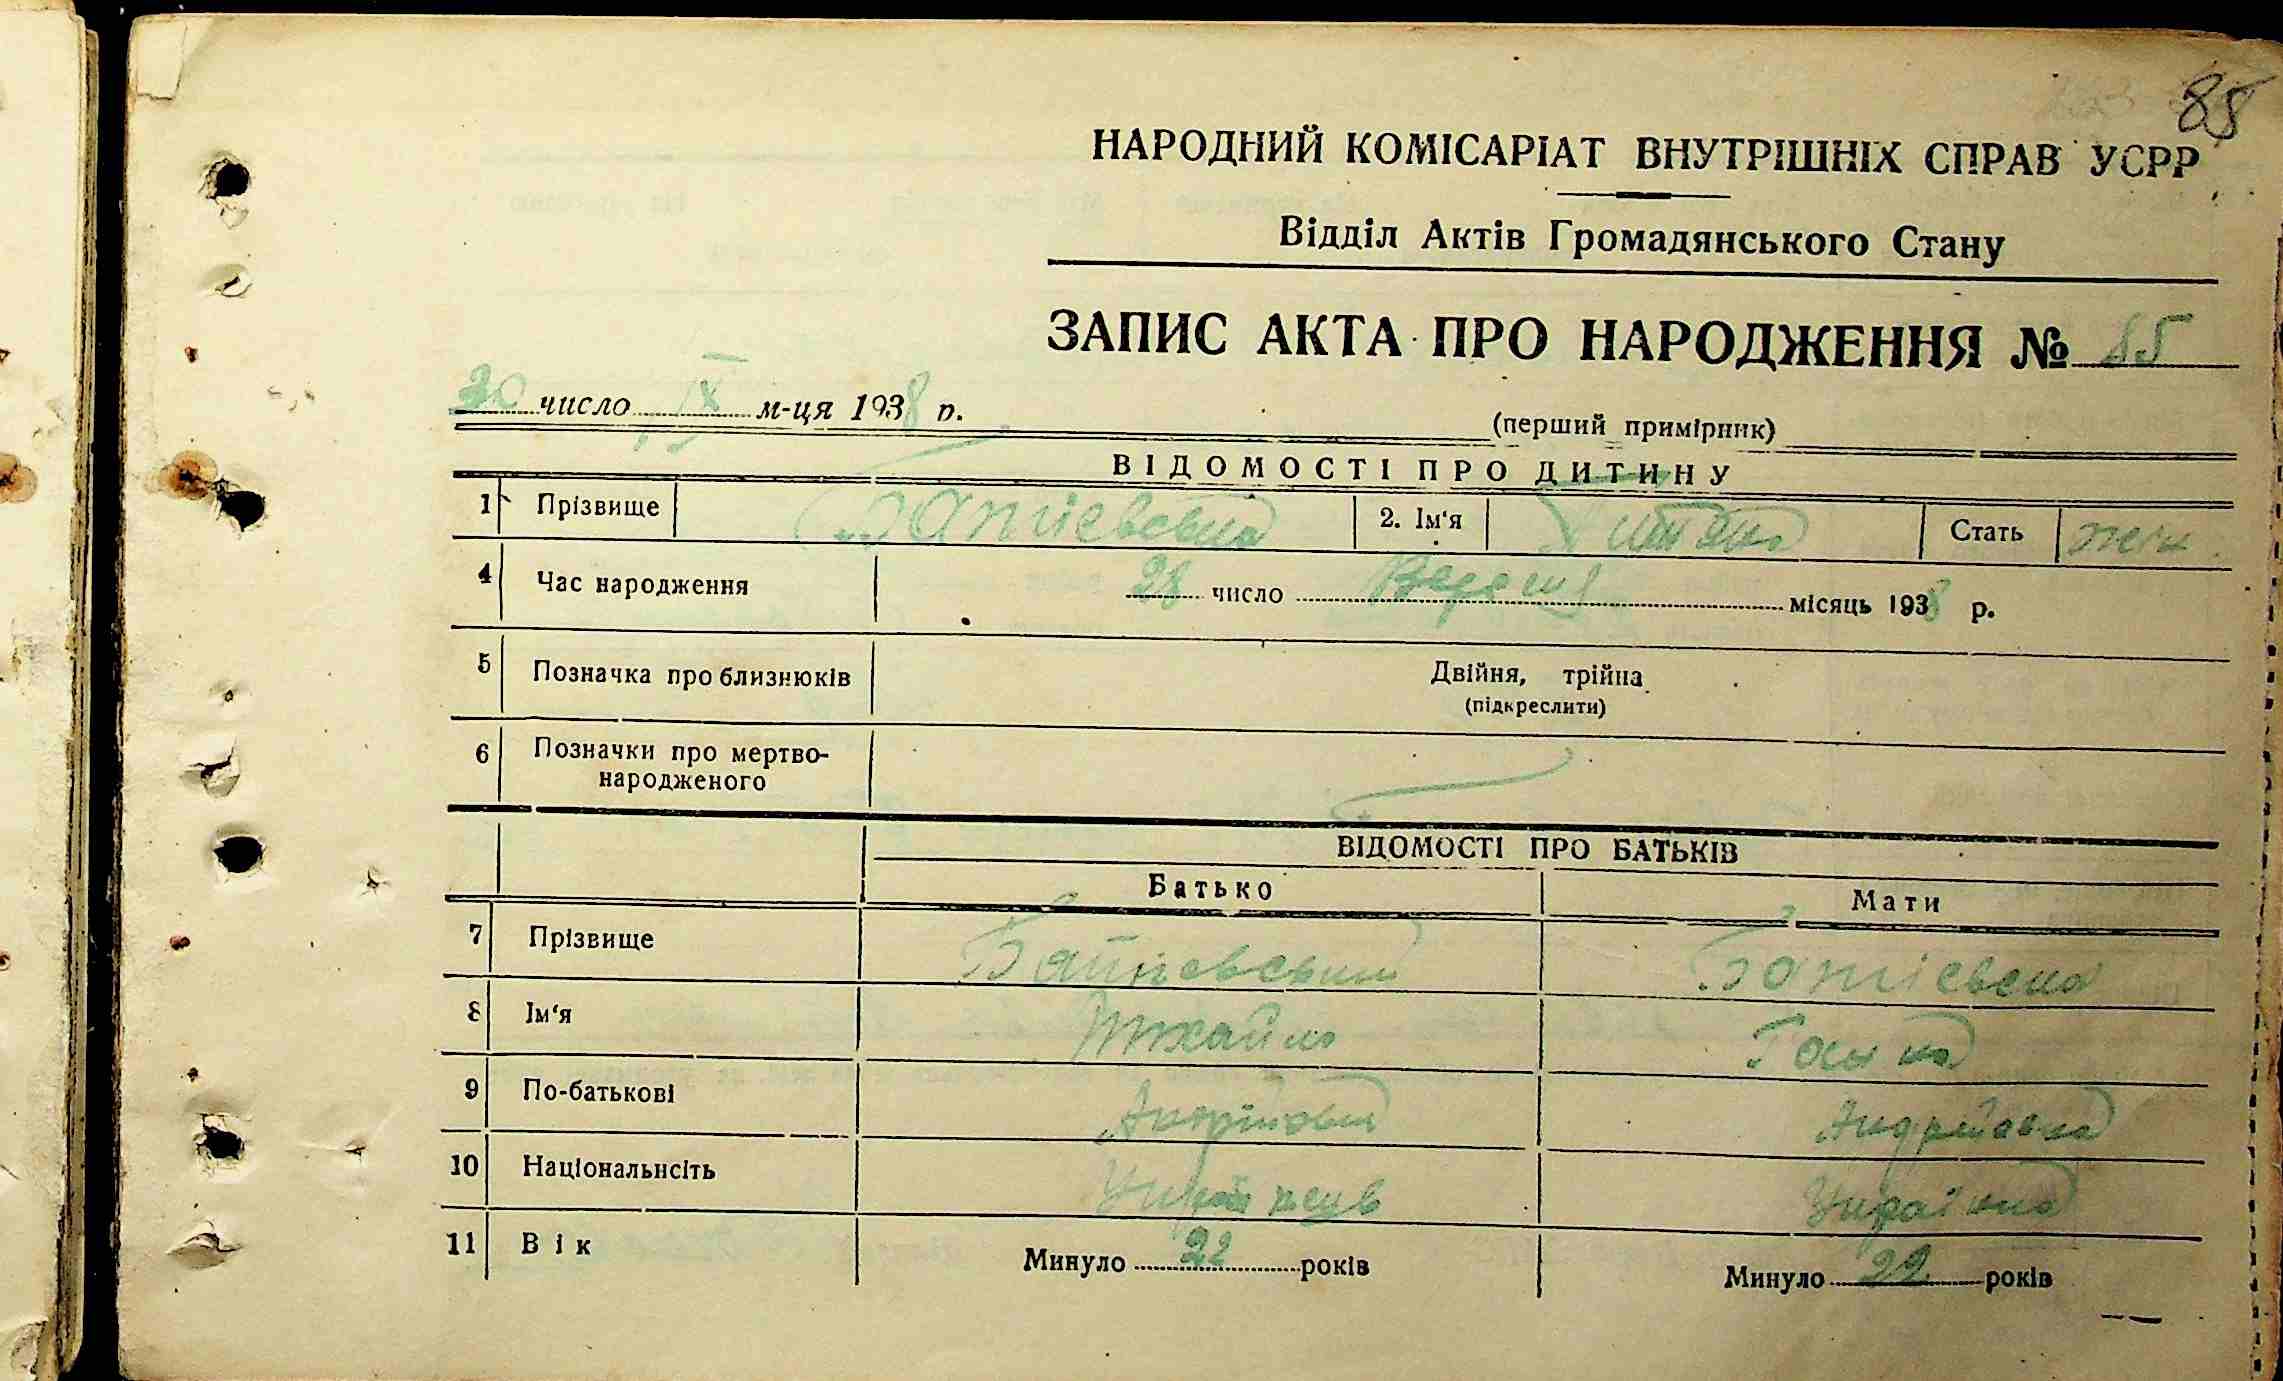 85
НАРОДНИЙ КОМІСАРІАТ ВНУТРІШНІХ СПРАВ УСРР
Відділ Актів Громадянського Стану
ЗАПИС АКТА ПРО НАРОДЖЕННЯ № 85
30 число IX м-ця 1938 р.
(перший примірник)
ВІДОМОСТІ ПРО ДИТИНУ
1 Прізвище 2. Ім'я Стать жін.
4 Час народження 28 число Вересня місяць 1938 р.
5 Позначка про близнюків Двійня, трійна
(підкреслити)
6 Позначки про мертво-
народженого
ВІДОМОСТІ ПРО БАТЬКІВ
Батько Мати
7 Прізвище
8 Ім'я Михайло Ганна
9 По-батькові Андрійовна
10 Національнсіть Українець Українка
11 Вік Минуло 22 років Минуло 22 років